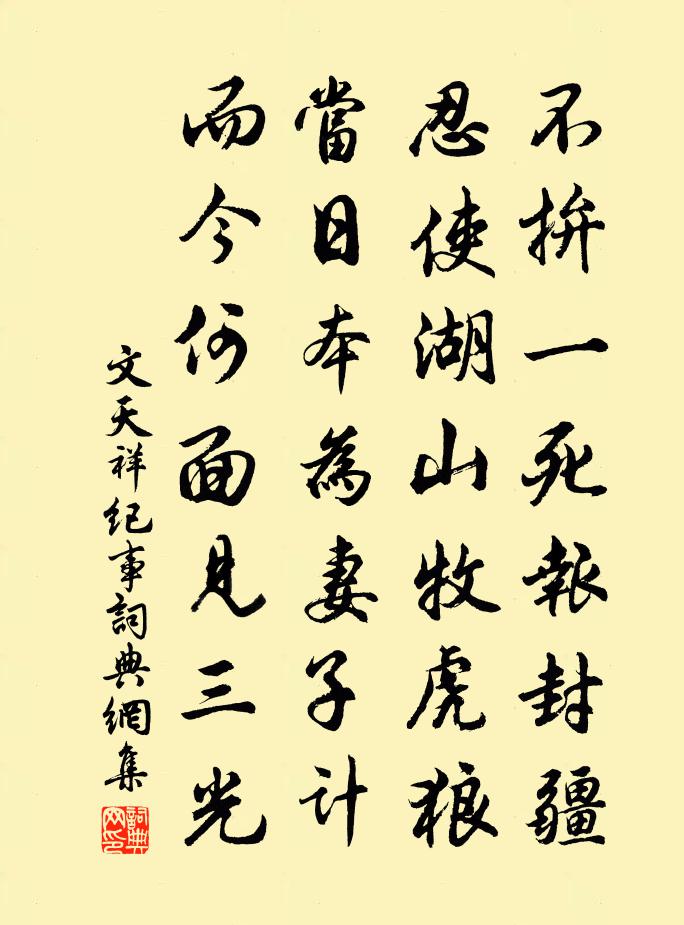 不拚一死報封疆
忍使湖山牧虎狼
當日本為妻子計
而今何面見三光
文天祥紀事詞典網集
詞典
网印